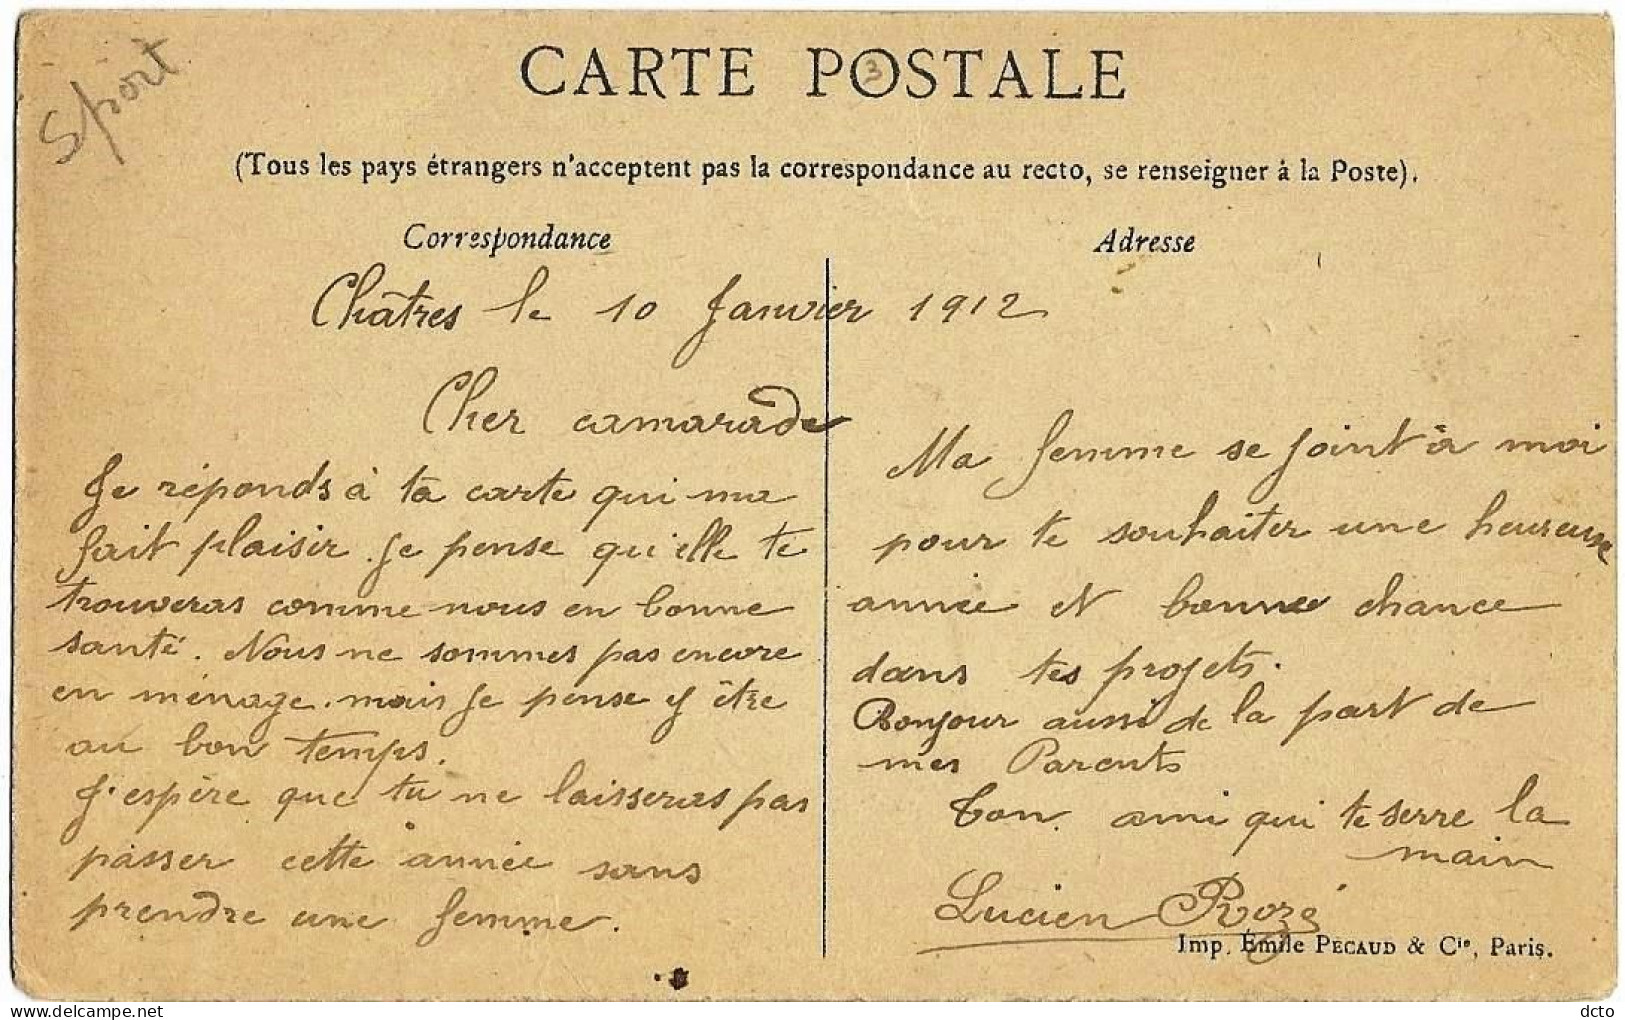 Sport
CARTE POSTALE
3
(Tous les pays étrangers n'acceptent pas la correspondance au recto, se renseigner à la Poste).
Correspondance
Adresse
Châtres le 10 Janvier 1912
Cher camarade
Je réponds à ta carte qui ma
fait plaisir. Je pense qu'elle te
trouveras comme nous en bonne
santé. Nous ne sommes pas encore
en ménage. mais Je pense y être
au bon temps.
J'espère que tu ne laisseras pas
passer cette année sans
prendre une femme.
Ma femme se joint à moi
pour te souhaiter une heureuse
année et bonne chance
dans tes projets.
Bonjour aussi de la part de
mes Parents
Ton ami qui te serre la
main
Lucien Rozé
Imp. Émile PÉCAUD & Cie, Paris.
delcampe.net
dcto